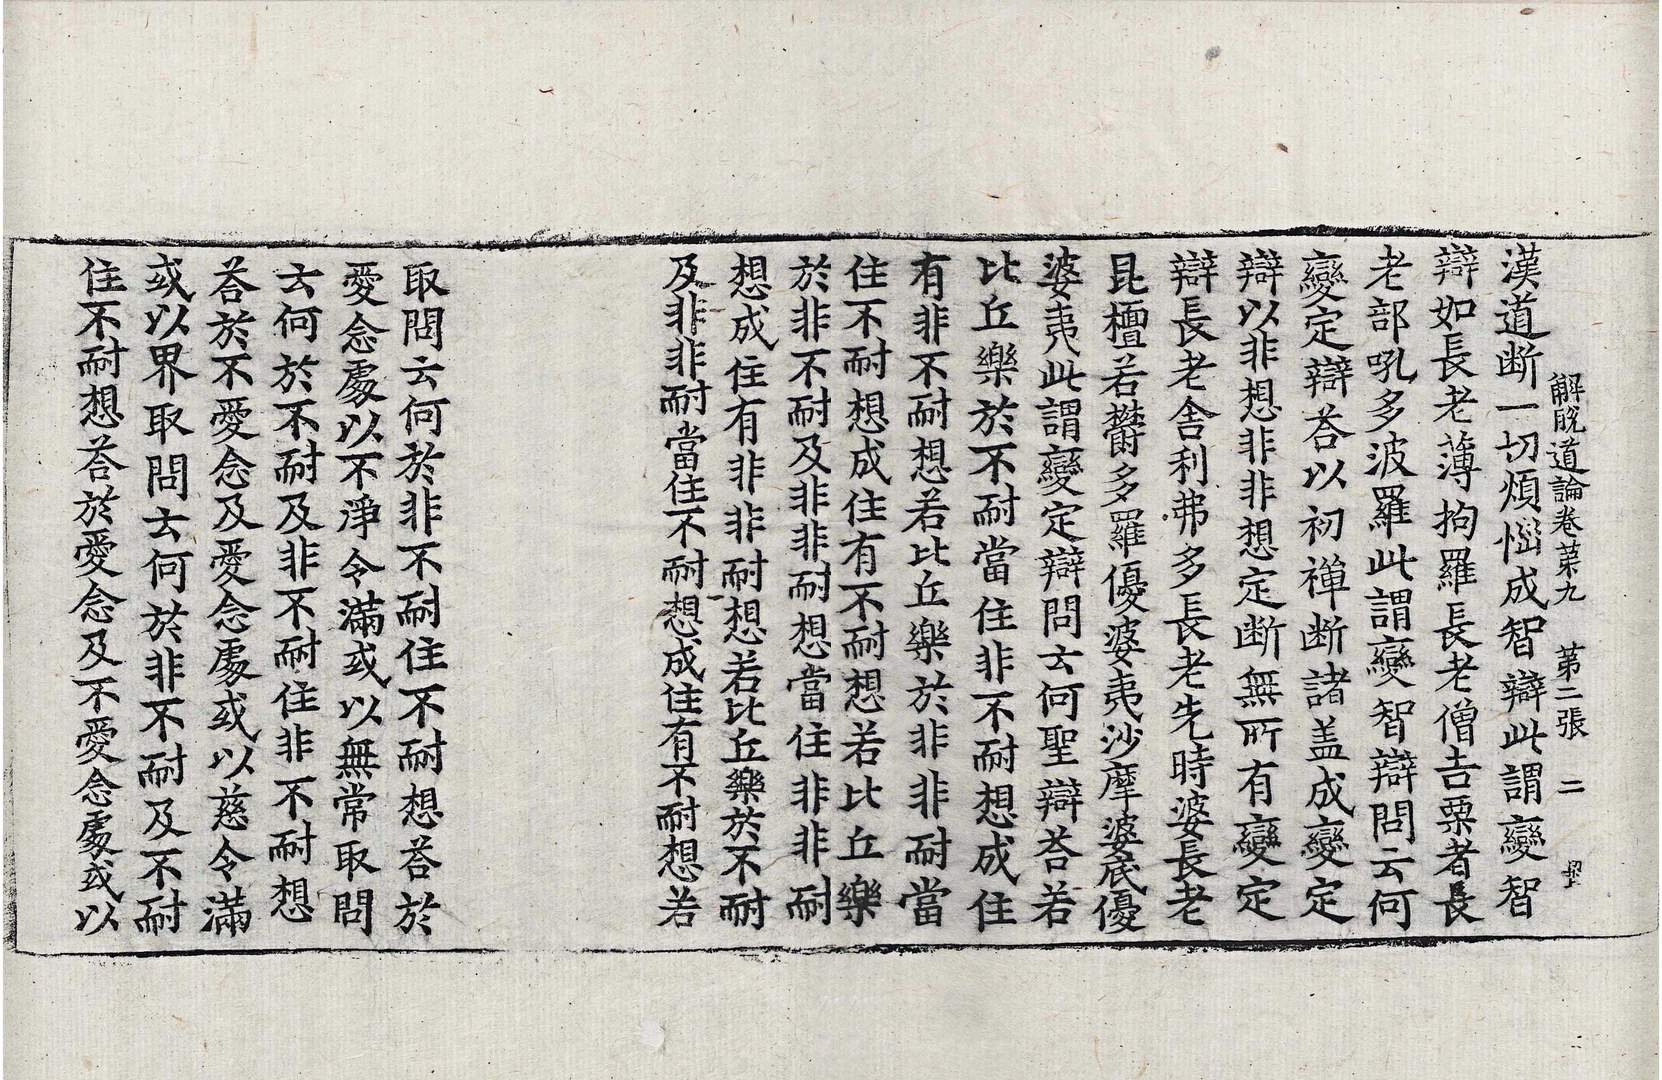 解脫道論卷第九　第二張　二
漢道断一切煩惱成智辯此謂變智
辯如長老薄拘羅長老僧吉栗者長
老部吼多波羅此謂變智辯問云何
變定辯荅以初禅断諸盖成變定
辯以非想非非想定断無所有變定
辯長老舍利弗多長老先時婆長老
昆檀若欝多羅優婆夷沙摩婆底優
婆夷此謂變定辯問云何聖辯荅若
比丘樂於不耐當住非不耐想成住
有非不耐想若比丘樂於非非耐當
住不耐想成住有不耐想若比丘樂
於非不耐及非非耐想當住非非耐
想成住有非非耐想若比丘樂於不耐
及非非耐當住不耐想成住有不耐想若
取問云何於非不耐住不耐想荅於
愛念處以不淨令滿或以無常取問
云何於不耐及非不耐住非不耐想
荅於不愛念及愛念處或以慈令滿
或以界取問云何於非不耐及不耐
住不耐想荅於愛念及不愛念處或以